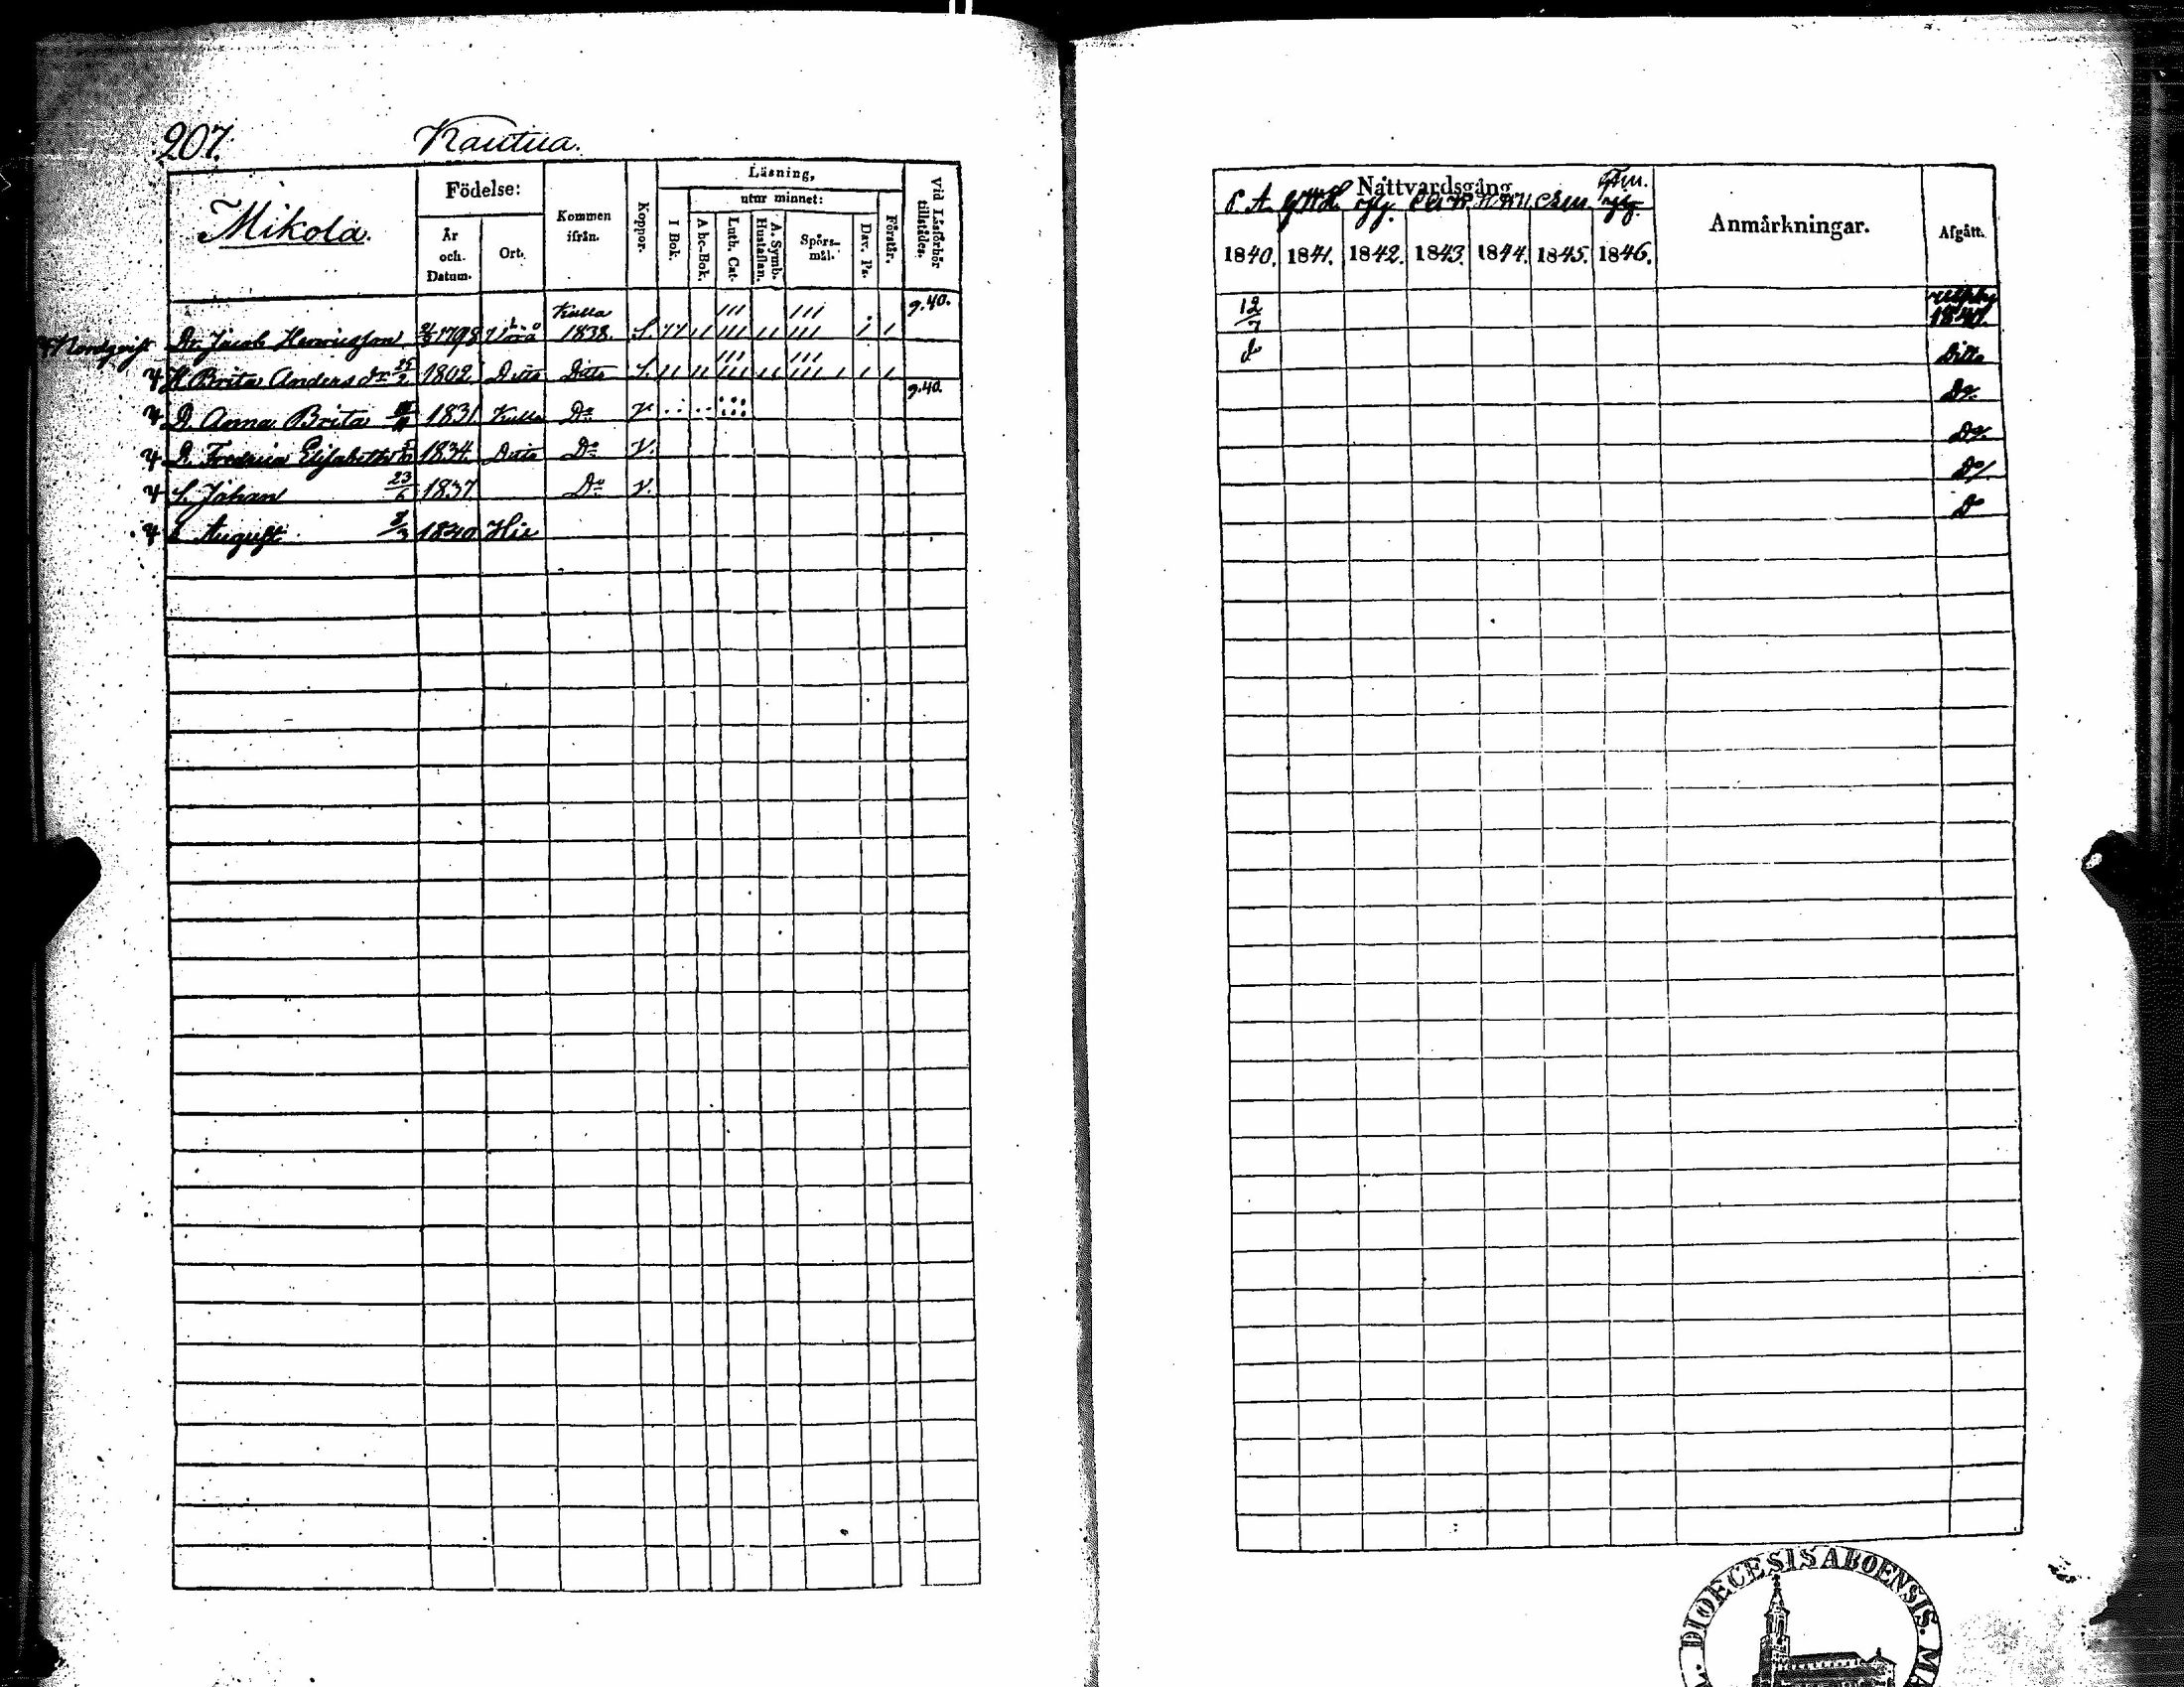 207. Kautua.
Mikola.
Födelse:
År och. Datum.
Ort.
Kommen ifrån.
Koppor.
Läsning,
utur minnet:
I Bok.
Abc-Bok.
Luth. Cat-
A. Symb. Hustaflan.
Spörs-mål.
Dav. Ps.
Förstår.
Vid Läsförhör tillstädes.
Kulla 9.40.
Dr. Jacob Henricsson 1798 1838. S.
H. Brita Andersdr 25/2 1802 Ditto Ditto S.
9.40.
D. Anna Brita 1831 Kulla Do V.
D. Fredrica Elisabeth 1834. Ditto Do V.
S. Johan 23/6 1837 Do V.
S. August 1840 Hic
Nattvardsgång
1840. 1841. 1842. 1843. 1844. 1845. 1846.
Anmärkningar.
Afgått.
12/7
do Ditto
Do
Do
Do
Do
DIOECESIS ABOENSIS.